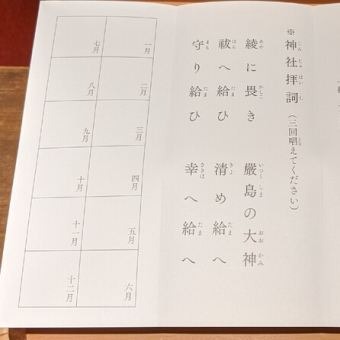 ※神社拝詞（三回唱えてください）
綾に畏き　厳島の大神
祓へ給ひ　清め給へ
守り給ひ　幸へ給へ
一月
二月
三月
四月
五月
六月
七月
八月
九月
十月
十一月
十二月